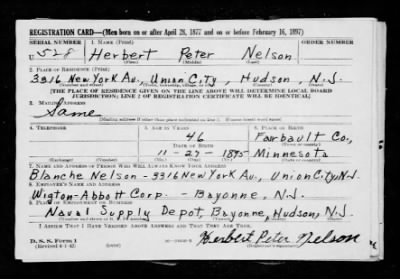 REGISTRATION CARD—(Men born on or after April 28, 1877 and on or before February 16, 1897)
SERIAL NUMBER 1. NAME (Print) ORDER NUMBER
U 528 Herbert Peter Nelson
(First) (Middle) (Last)
2. PLACE OF RESIDENCE (Print)
3316 New York Av., Union City, Hudson, N.J.
(Number and street) (Town, township, village, or city) (County) (State)
[THE PLACE OF RESIDENCE GIVEN ON THE LINE ABOVE WILL DETERMINE LOCAL BOARD
JURISDICTION; LINE 2 OF REGISTRATION CERTIFICATE WILL BE IDENTICAL]
3. MAILING ADDRESS
Same
[Mailing address if other than place indicated on line 2. If same insert word same]
4. TELEPHONE 5. AGE IN YEARS 6. PLACE OF BIRTH
46 Fairbault Co.,
DATE OF BIRTH (Town or county)
11 - 27 - 1895 Minnesota
(Exchange) (Number) (Mo.) (Day) (Yr.) (State or country)
7. NAME AND ADDRESS OF PERSON WHO WILL ALWAYS KNOW YOUR ADDRESS
Blanche Nelson - 3316 New York Av., Union City, N.J.
8. EMPLOYER'S NAME AND ADDRESS
Wigton-Abbott Corp. - Bayonne, N.J.
9. PLACE OF EMPLOYMENT OR BUSINESS
Naval Supply Depot, Bayonne, Hudson, N.J.
(Number and street or R. F. D. number) (Town) (County) (State)
I AFFIRM THAT I HAVE VERIFIED ABOVE ANSWERS AND THAT THEY ARE TRUE.
D. S. S. Form 1
(Revised 4-1-42) Herbert Peter Nelson